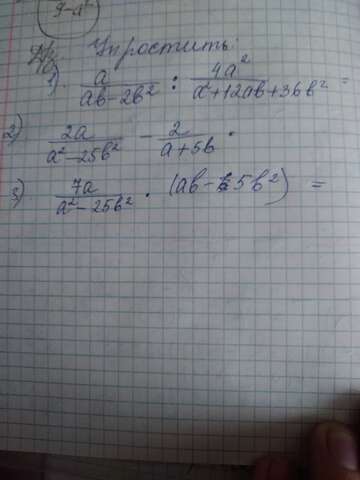 9-a²
Д/з Упростить:
1) a/(ab-2b²) : 4a²/(a²+12ab+36b²) =
2) 2a/(a²-25b²) - 2/(a+5b) ·
3) 7a/(a²-25b²) · (ab-5b²) =